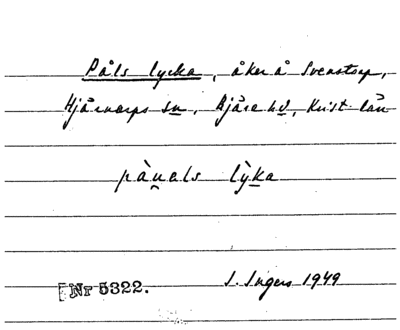 Påls lycka, åker å Svenstorp,
Hjärnarps sn, Bjäre hd, Krist. län
pàu̯els lỳka
[Nr 5322. I. Ingers 1949